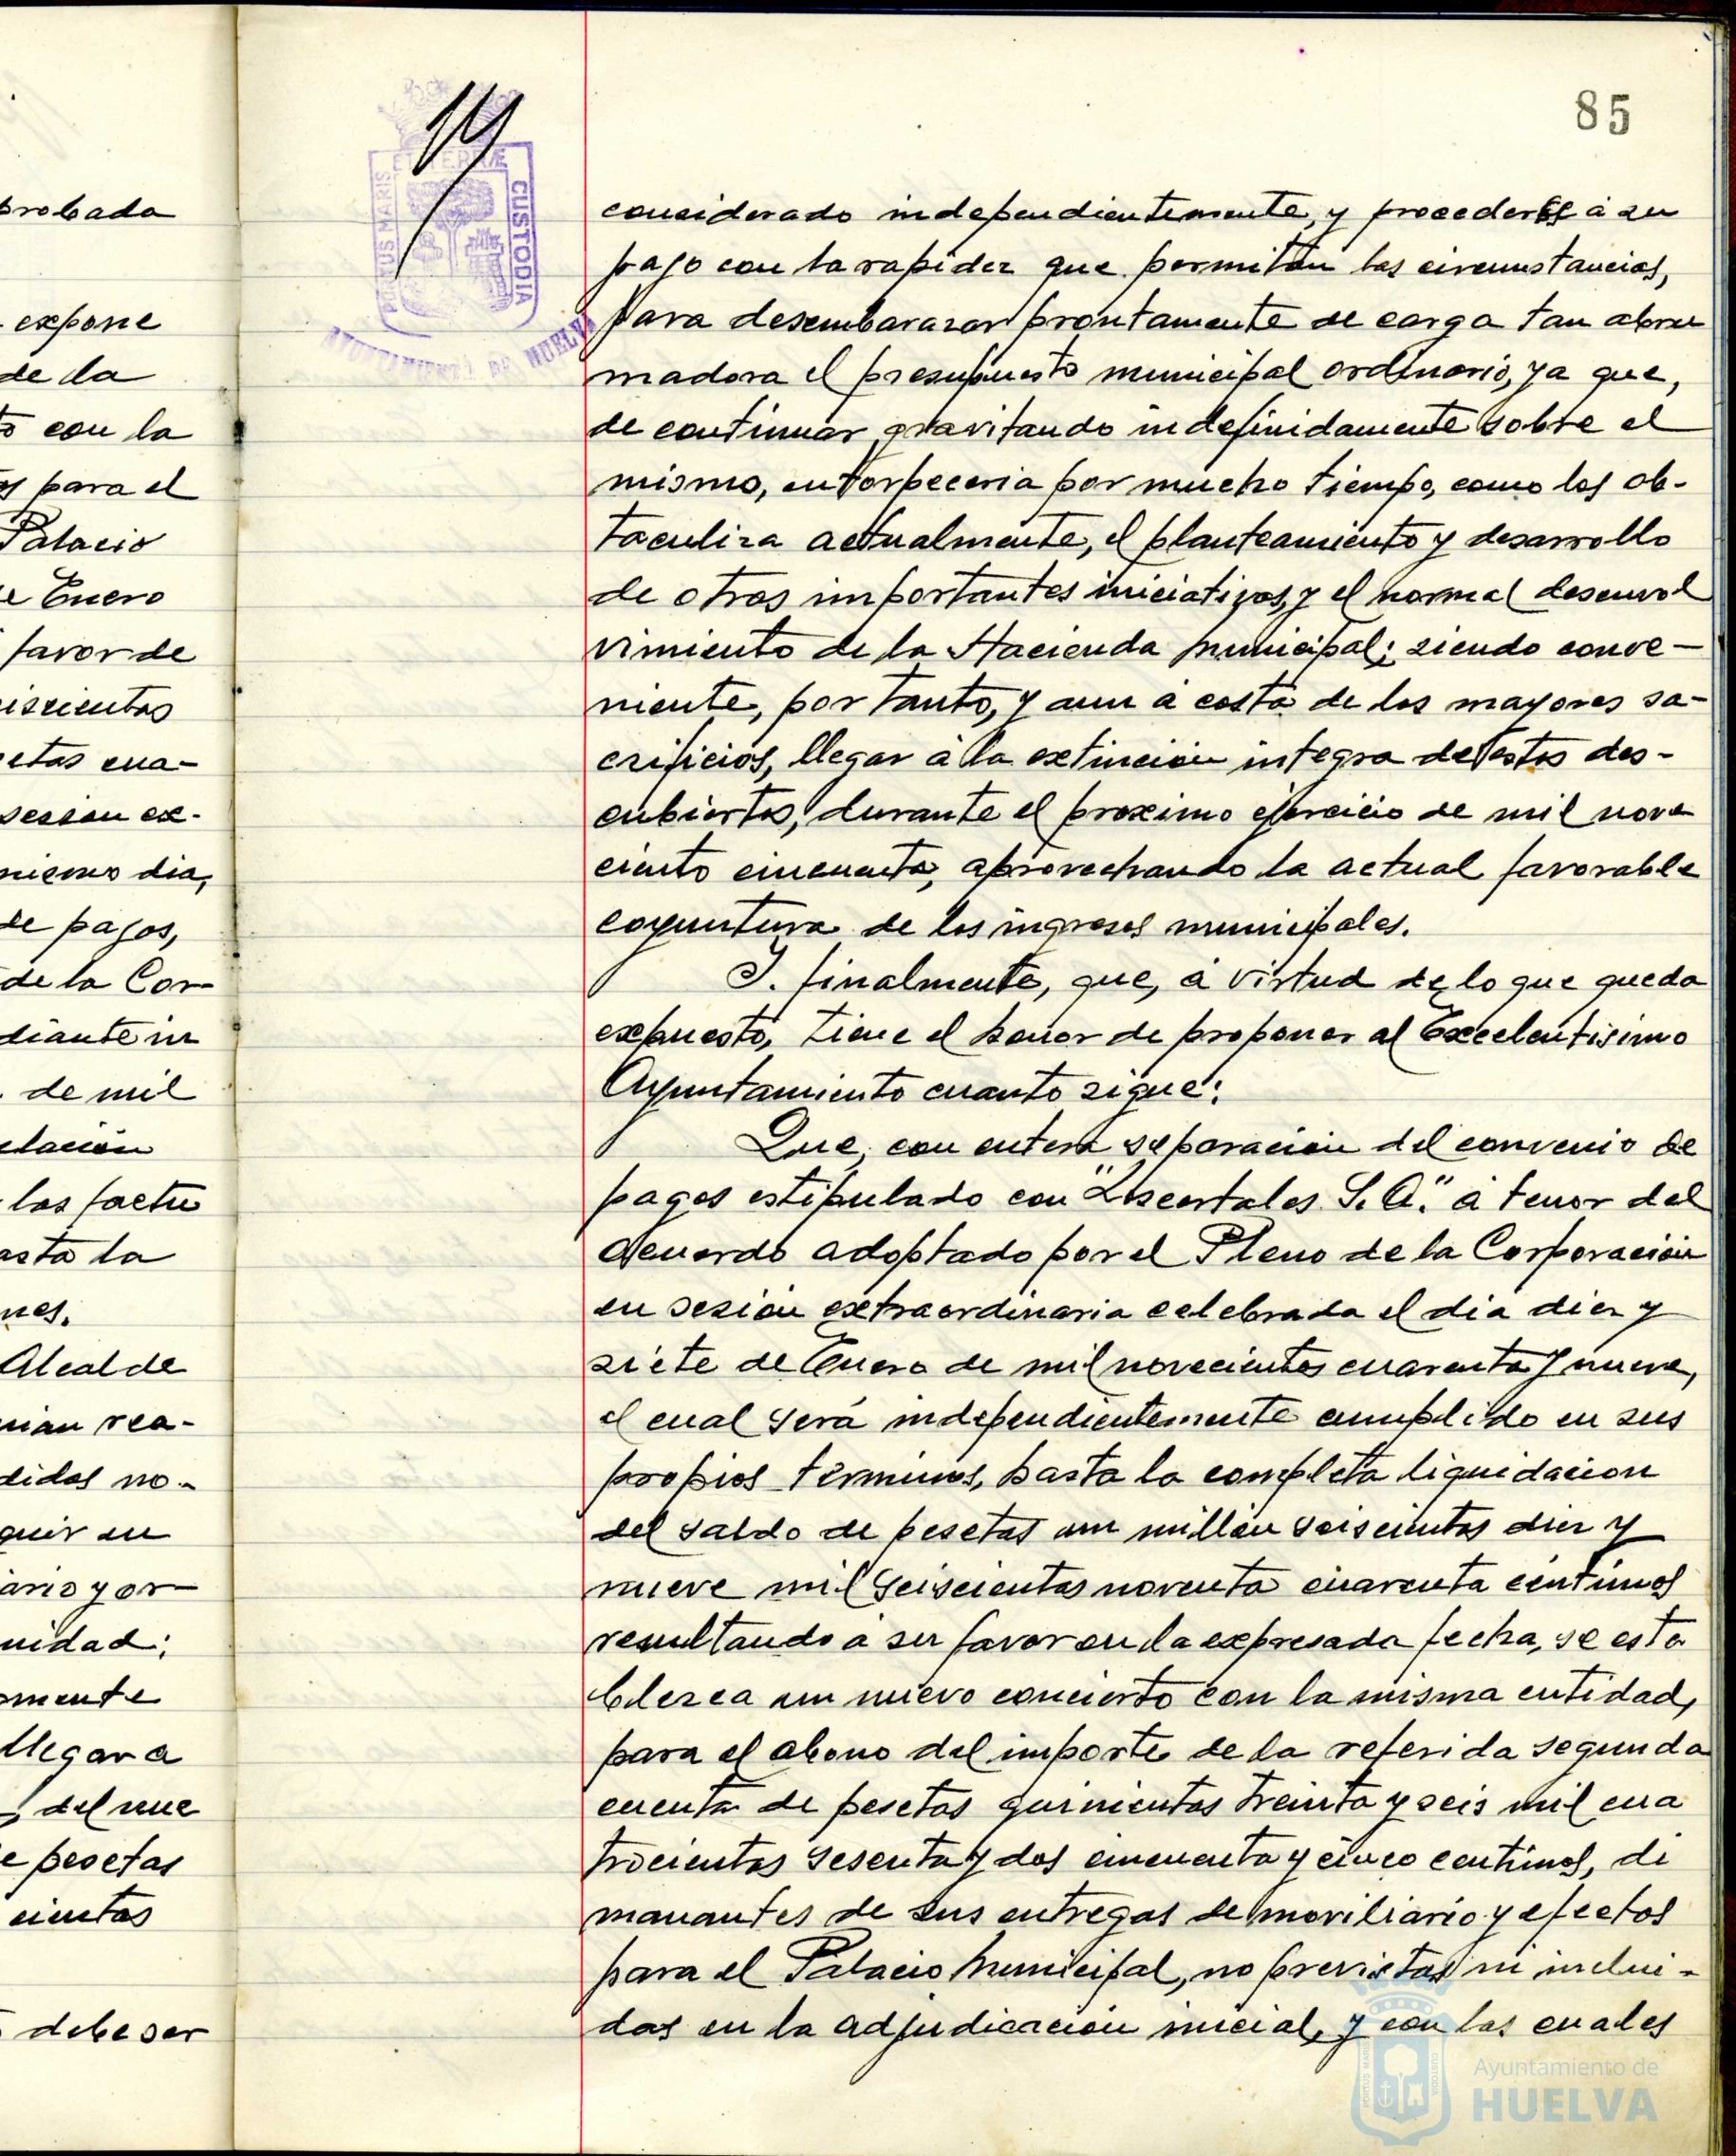 85
PORTUS MARIS
ET TERRÆ
CUSTODIA
AYUNTAMIENTO DE HUELVA
probada
expone
de la
con la
para el
Palacio
Enero
favor de
iscientos
etas cua-
sesion ex-
mismo dia,
de pagos,
de la Cor-
diante in
de mil
elación
las factu
asta la
nes.
Alcalde
nian rea-
didas no-
quir en
ario y or-
nidad;
omente
llegar a
del nue
e pesetas
cientas
debe ser
considerado independientemente, y procederse á su
pago con la rapidez que permitan las circunstancias,
para desembarazar prontamente de carga tan abru
madora el presupuesto municipal ordinario, ya que,
de continuar gravitando indefinidamente sobre el
mismo, entorpeceria por mucho tiempo, como los obs-
taculiza actualmente, el planteamiento y desarrollo
de otras importantes iniciativas, y el normal desenvol
vimiento de la Hacienda municipal; siendo conve-
niente, por tanto, y aun á costa de los mayores sa-
crificios, llegar á la extinción integra de estos des-
cubiertos, durante el proximo ejercicio de mil nove
ciento cincuenta, aprovechando la actual favorable
coyuntura de los ingresos municipales.
Y. finalmente, que, á virtud de lo que queda
expuesto, tiene el honor de proponer al Excelentisimo
Ayuntamiento cuanto sigue:
Que, con entera separación del convenio de
pagos estipulado con " S. A." á tenor del
acuerdo adoptado por el Pleno de la Corporación
en sesion extraordinaria celebrada el dia diez y
siete de Enero de mil novecientos cuarenta y nueve,
el cual será independientemente cumplido en sus
propios términos, hasta la completa liquidacion
del saldo de pesetas un millón seiscientas diez y
nueve mil seiscientas noventa cuarenta centimos
resultando á su favor en la expresada fecha, se esta
blezca un nuevo concierto con la misma entidad,
para el abono del importe de la referida segunda
cuenta de pesetas quinientas treinta y seis mil cua
trocientas sesenta y dos cincuenta y cinco centimos, di
manantes de sus entregas de moviliario y efectos
para el Palacio Municipal, no previstas ni inclui-
das en la adjudicación inicial, y con las cuales
Ayuntamiento de
HUELVA